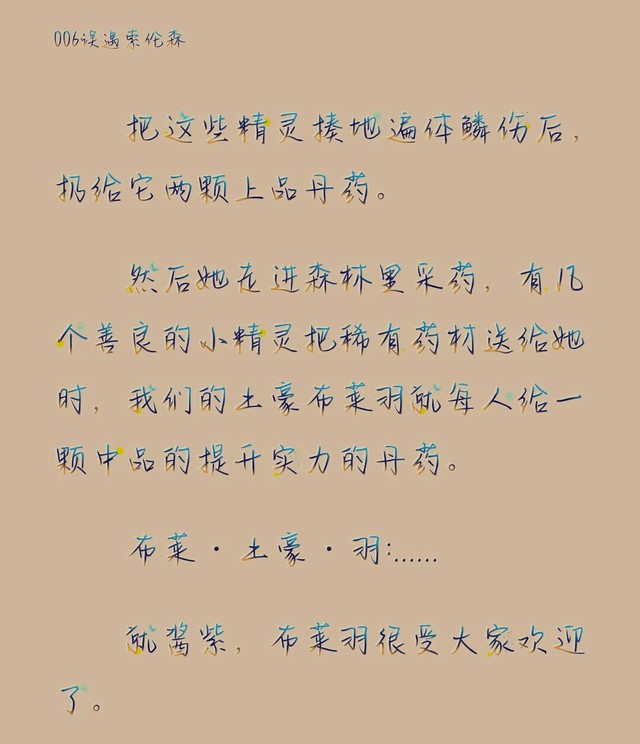 006误遇索伦森
把这些精灵揍地遍体鳞伤后，
扔给它两颗上品丹药。
然后她走进森林里采药，有几
个善良的小精灵把稀有药材送给她
时，我们的土豪布莱羽就每人给一
颗中品的提升实力的丹药。
布莱·土豪·羽:......
就酱紫，布莱羽很受大家欢迎
了。